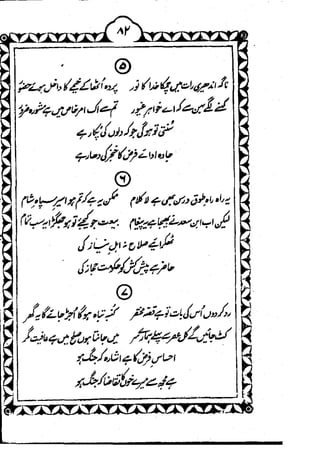 ۸۲
۵
ناگہ اندھیری رات میں چمکا خدا کا نور پردہ اُٹھا کے خیمے کا داخل ہوئے حضور
کہنے لگے بہن سے کہ اے خواہرِ غیور تم سے اک امرِ خاص میں ہے مشورہ ضرور
سنتی تو ہو گی جو کہ دلوں کی پکار ہے
جادہ ادائے فرض کا خنجر کی دھار ہے
۶
یہ راہ راہِ طوق و رسن بھی ہے لا کلام ممکن یہ ہے کہ تم ہو اسیرِ سپاہِ شام
لیکن اب ابنِ سعد نے بھیجا ہے یہ پیغام بیعت جو کیجئے تو ہو جھگڑا یہ سب تمام
ٹھکرائیے صلاح نہ اہلِ نیاز کی
حاضر ہے پیش کش کو حکومت حجاز کی
۷
رد کر دوں اُس کی بات تو ہے قصہ مختصر کنبہ تباہ ہوگا اُجڑ جائے گا یہ گھر
کٹ جائیں گے کل عصر سے پہلے تمام سر میں جانتا ہوں صلح میں ہے عافیت مگر
احساسِ فرض کا ہے اشارہ کہ جنگ ہو
ہے مجھ سے میرے خوں کا تقاضا کہ جنگ ہو